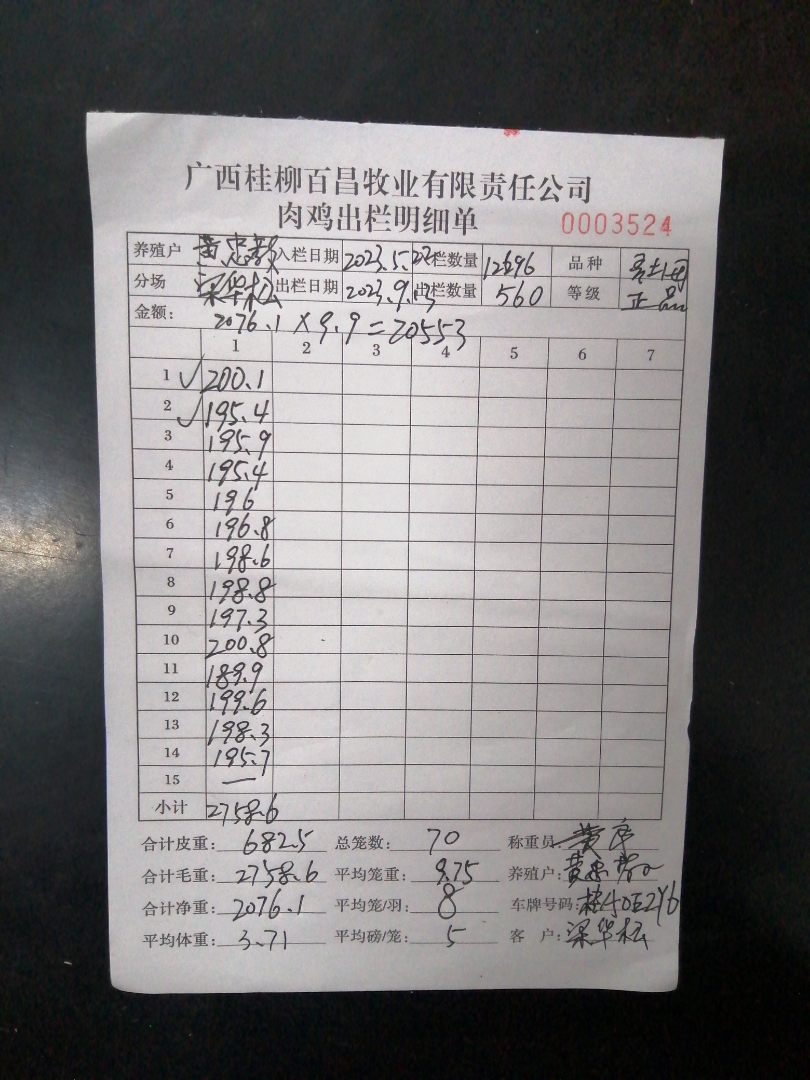 广西桂柳百昌牧业有限责任公司
肉鸡出栏明细单 0003524
养殖户 黄忠 入栏日期 2023.5.22 栏数量 12696 品种
分场 梁华松 出栏日期 2023.9.13 出栏数量 560 等级 正品
金额: 2076.1×9.9=20553
1 2 3 4 5 6 7
1 ✓ 200.1
2 ✓ 195.4
3 195.9
4 195.4
5 196
6 196.8
7 198.6
8 198.8
9 197.3
10 200.8
11 189.9
12 199.6
13 198.3
14 195.7
15 —
小计 2758.6
合计皮重: 682.5 总笼数: 70 称重员: 黄
合计毛重: 2758.6 平均笼重: 9.75 养殖户: 黄忠
合计净重: 2076.1 平均笼/羽: 8 车牌号码:
平均体重: 3.71 平均磅/笼: 5 客 户: 梁华松